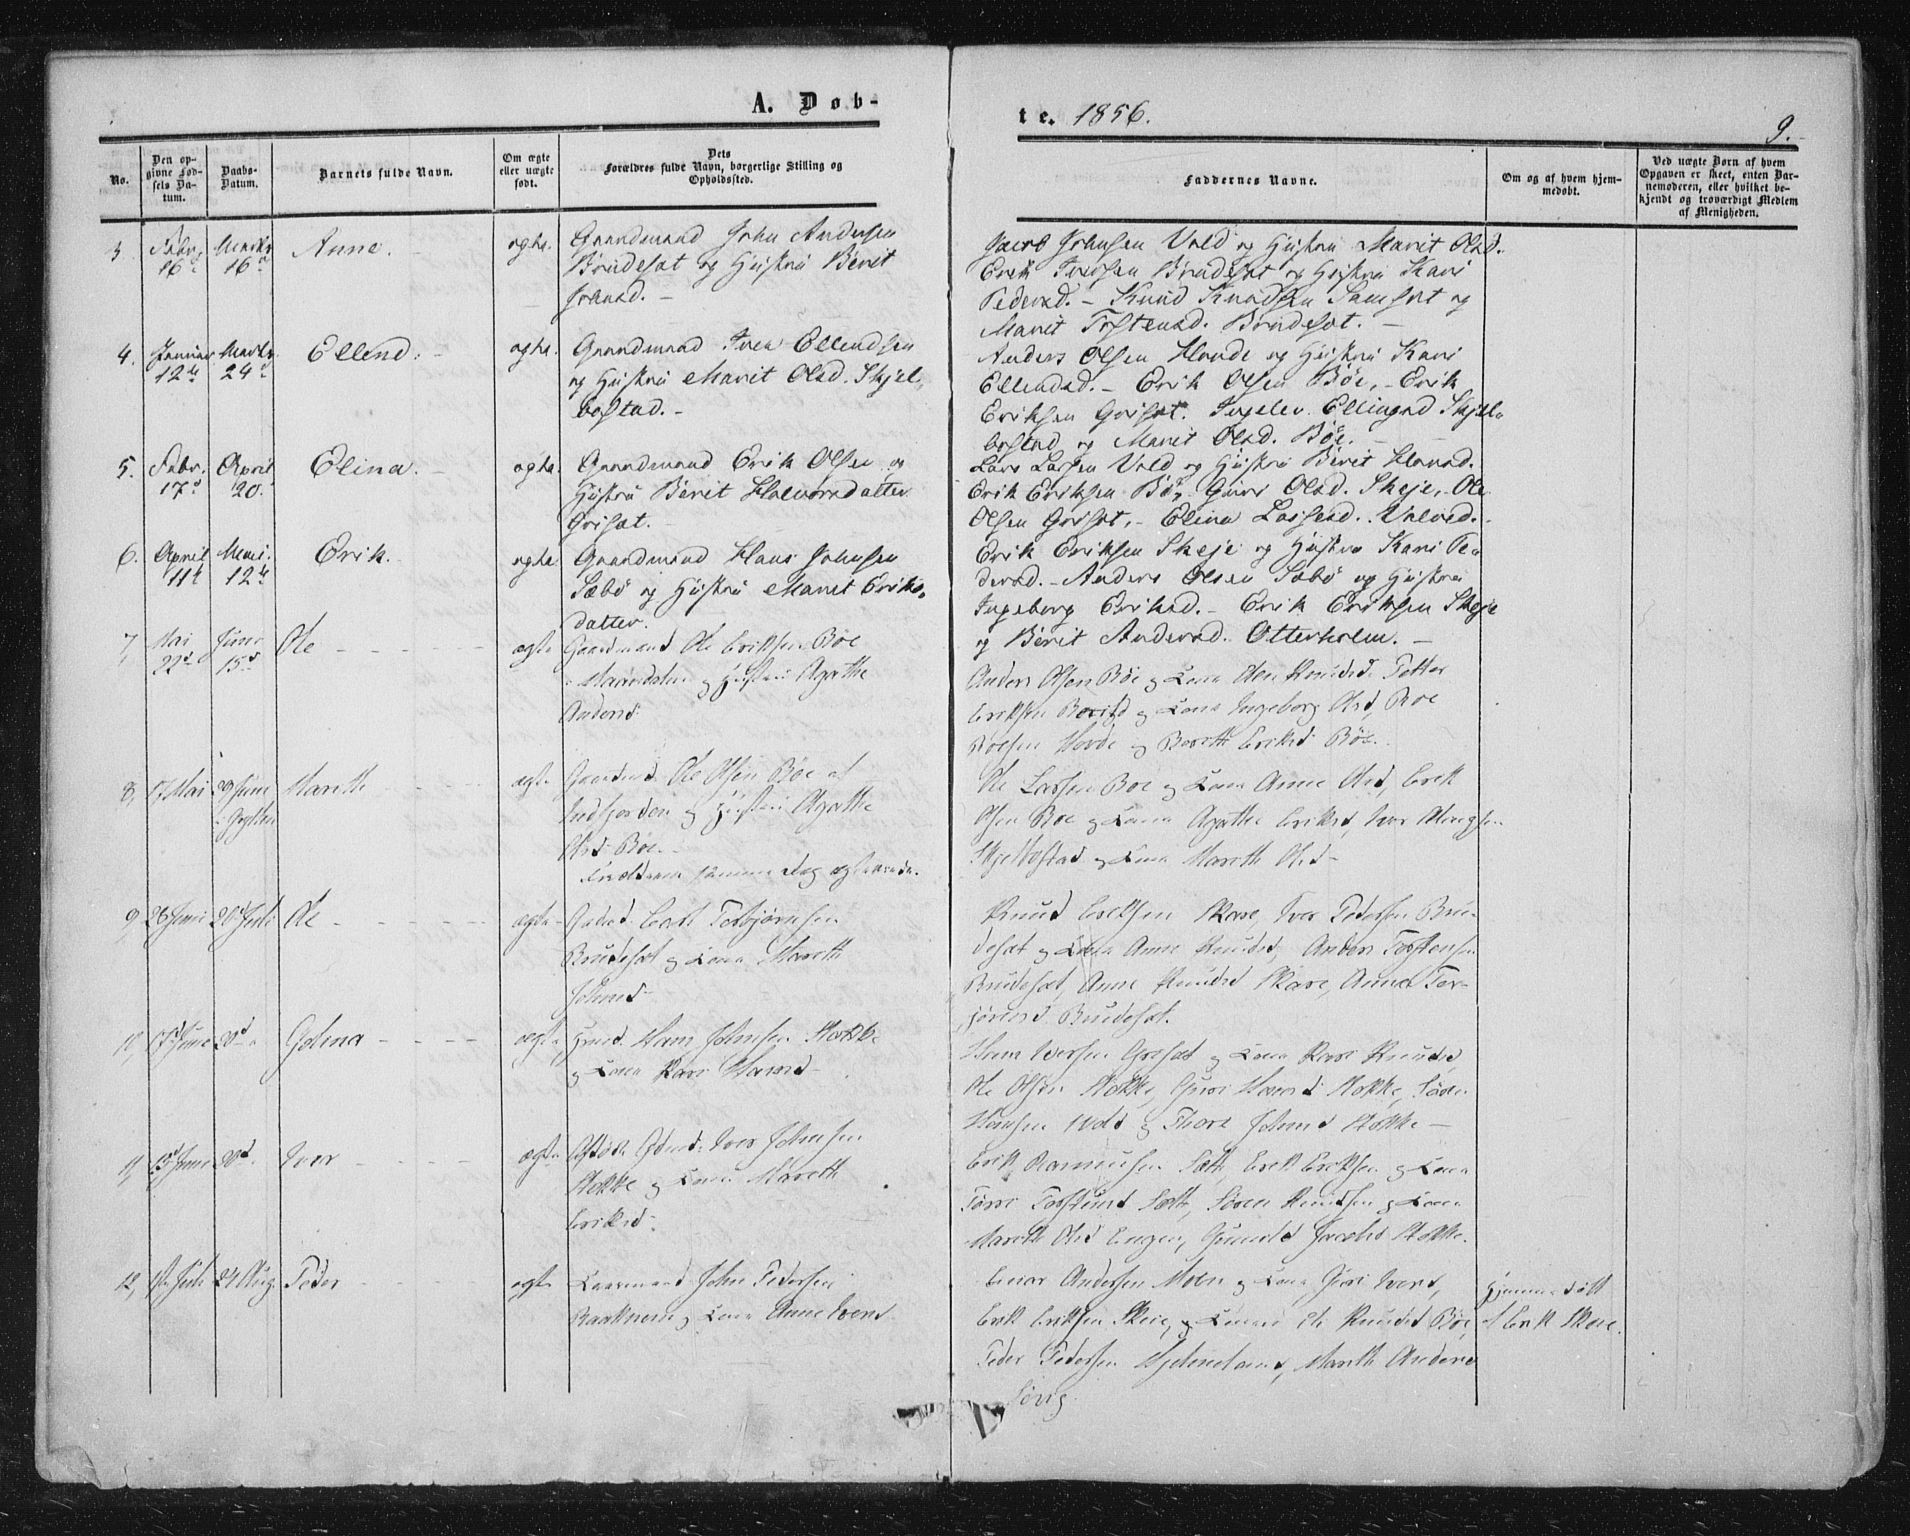 A. Døb-
te. 1856.
9.
No.
Den opgivne Fødsels Datum.
Daabs-Datum.
Barnets fulde Navn.
Om ægte eller uægte født.
Dets Forældres fulde Navn, borgerlige Stilling og Opholdssted.
Faddernes Navne.
Om og af hvem hjemmedøbt.
Ved uægte Børn af hvem Opgaven er skeet, enten Barnemoderen, eller hvilket bekjendt og troværdigt Medlem af Menigheden.
3. Febr. 16de Marts 16de Anne. ægte. Gaardmand John Andersen
Brudesæt og Hustru Berit
Johnsd. –
Jacob Johnsen Vold og Hustru Marit Olsd.
Erik Iversen Brudesæt og Hustru Kari
Pedersd. – Knud Knudsen Samset og
Marit Tostensd. Brudesæt. –
4. Januar 12te Marts 24de Ellend. – ægte. Gaardmand Iver Ellendsen
og Hustru Marit Olsd. Skjel-
bostad. –
Anders Olsen Hovde og Hustru Kari
Ellendsd. – Erik Olsen Bøe, – Erik
Eriksen Griset. Ingelev Ellingsd Skjel-
bostad og Marit Olsd. Bøe. –
5. Febr. 17de April 20. Elina. – ægte. Gaardmand Erik Olsen og
Hustru Berit Halvorsdatter
Grisæt. –
Lars Larsen Vold og Hustru Berit Hansd.
Erik Eriksen Bø, Guri Olsd. Skeje, Ole
Olsen Griset, – Elina Lassesd.
6. April 11te Mai 12te Erik. ægte. Gaardmand Hans Johnsen
Sæbø og Hustru Marit Eriks-
datter.
Erik Eriksen Skeje og Hustru Kari Pe-
dersd. – Anders Olsen Sæbø og Hustru
Ingeborg Eriksd. – Erik Eriksen Skeje
og Berit Andersd. Otterholm. –
7, Mai 22d Juni 15d Ole ægte Gaardmand Ole Eriksen Bøe
og Hustru Agathe
Andersd.
Anders Olsen Bøe og Kona Knudsd. Petter
Eriksen og Kona Ingeborg Olsd, Roe
Roesen Hovde og Bereth Eriksd Bøe.
8, 17 Mai 29 Juni Mareth ægte Ole Olsen Bøe af
Indfjorden og Hustru Agathe
Olsd Bøe.
Forældrene samme Dag ægteviede.
Ole Larsen Boe og Kona Anne Olsd, Erik
Olsen Boe og Kona Agathe Eriksd, Iver
Skjelbostad og Kona Mareth Olsd –
9, 26 Juni 20 Juli Ole ægte Torbjørnsen
Brudesæt og Kona Mareth
Johnsd –
Knud Eriksen Skare, Iver Pedersen Bru-
desæt og Kona Anne Knudsd, Anders Torstensen
Brudesæt, Anne Knudsd Skare, Anne Tor-
jørnsd Brudesæt.
10, 17d Juni 20d Golina ægte Hans Johnsen Stokke
og Kona Kari Hansd –
Hans Iversen Griset og Kona Kari Knudsd
Ole Olsen Stokke, Guri Hansd Stokke, Søren
Hansen Wold og Thore Johnsd Stokke –
11, 13d Juni 20d. Iver ægte Iver Johnsen
Stokke og Kona Mareth
Eriksd.
Erik Rasmussen Sæth, Erik Eriksen og Kona
Torstensd Sæth, Søren Knudsen og Kona
Mareth Olsd Engen, Gunild Jacobsd Stokke.
12, 1ste Juli 24 Aug. Peder ægte John Pedersen
og Kona Anne Iversd
Einar Andersen Moen og Kona Iversd,
Erik Eriksen Skeie, og Knudsd Bøe
Peder Pedersen Hjelmeland, Mareth Andersd
Hjemmedøbt
af Erik Skeie.